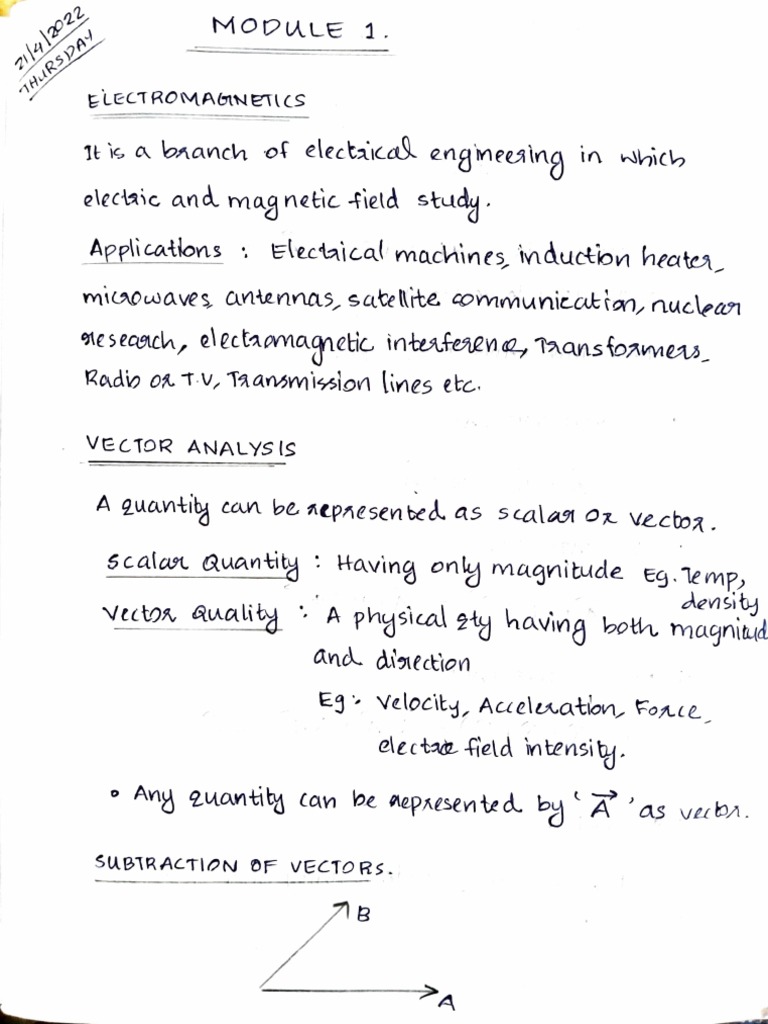 21/4/2022
THURSDAY
MODULE 1.
ELECTROMAGNETICS
It is a branch of electrical engineering in which
electric and magnetic field study.
Applications : Electrical machines, induction heater,
microwaves, antennas, satellite communication, nuclear
research, electromagnetic interference, Transformers,
Radio or T.V, Transmission lines etc.
VECTOR ANALYSIS
A quantity can be represented as scalar or vector.
Scalar Quantity : Having only magnitude Eg. Temp,
density
Vector Quality : A physical qty having both magnitud
and direction
Eg :- Velocity, Acceleration, Force,
electric field intensity.
• Any quantity can be represented by ' A⃗ ' as vector.
SUBTRACTION OF VECTORS.
B
A